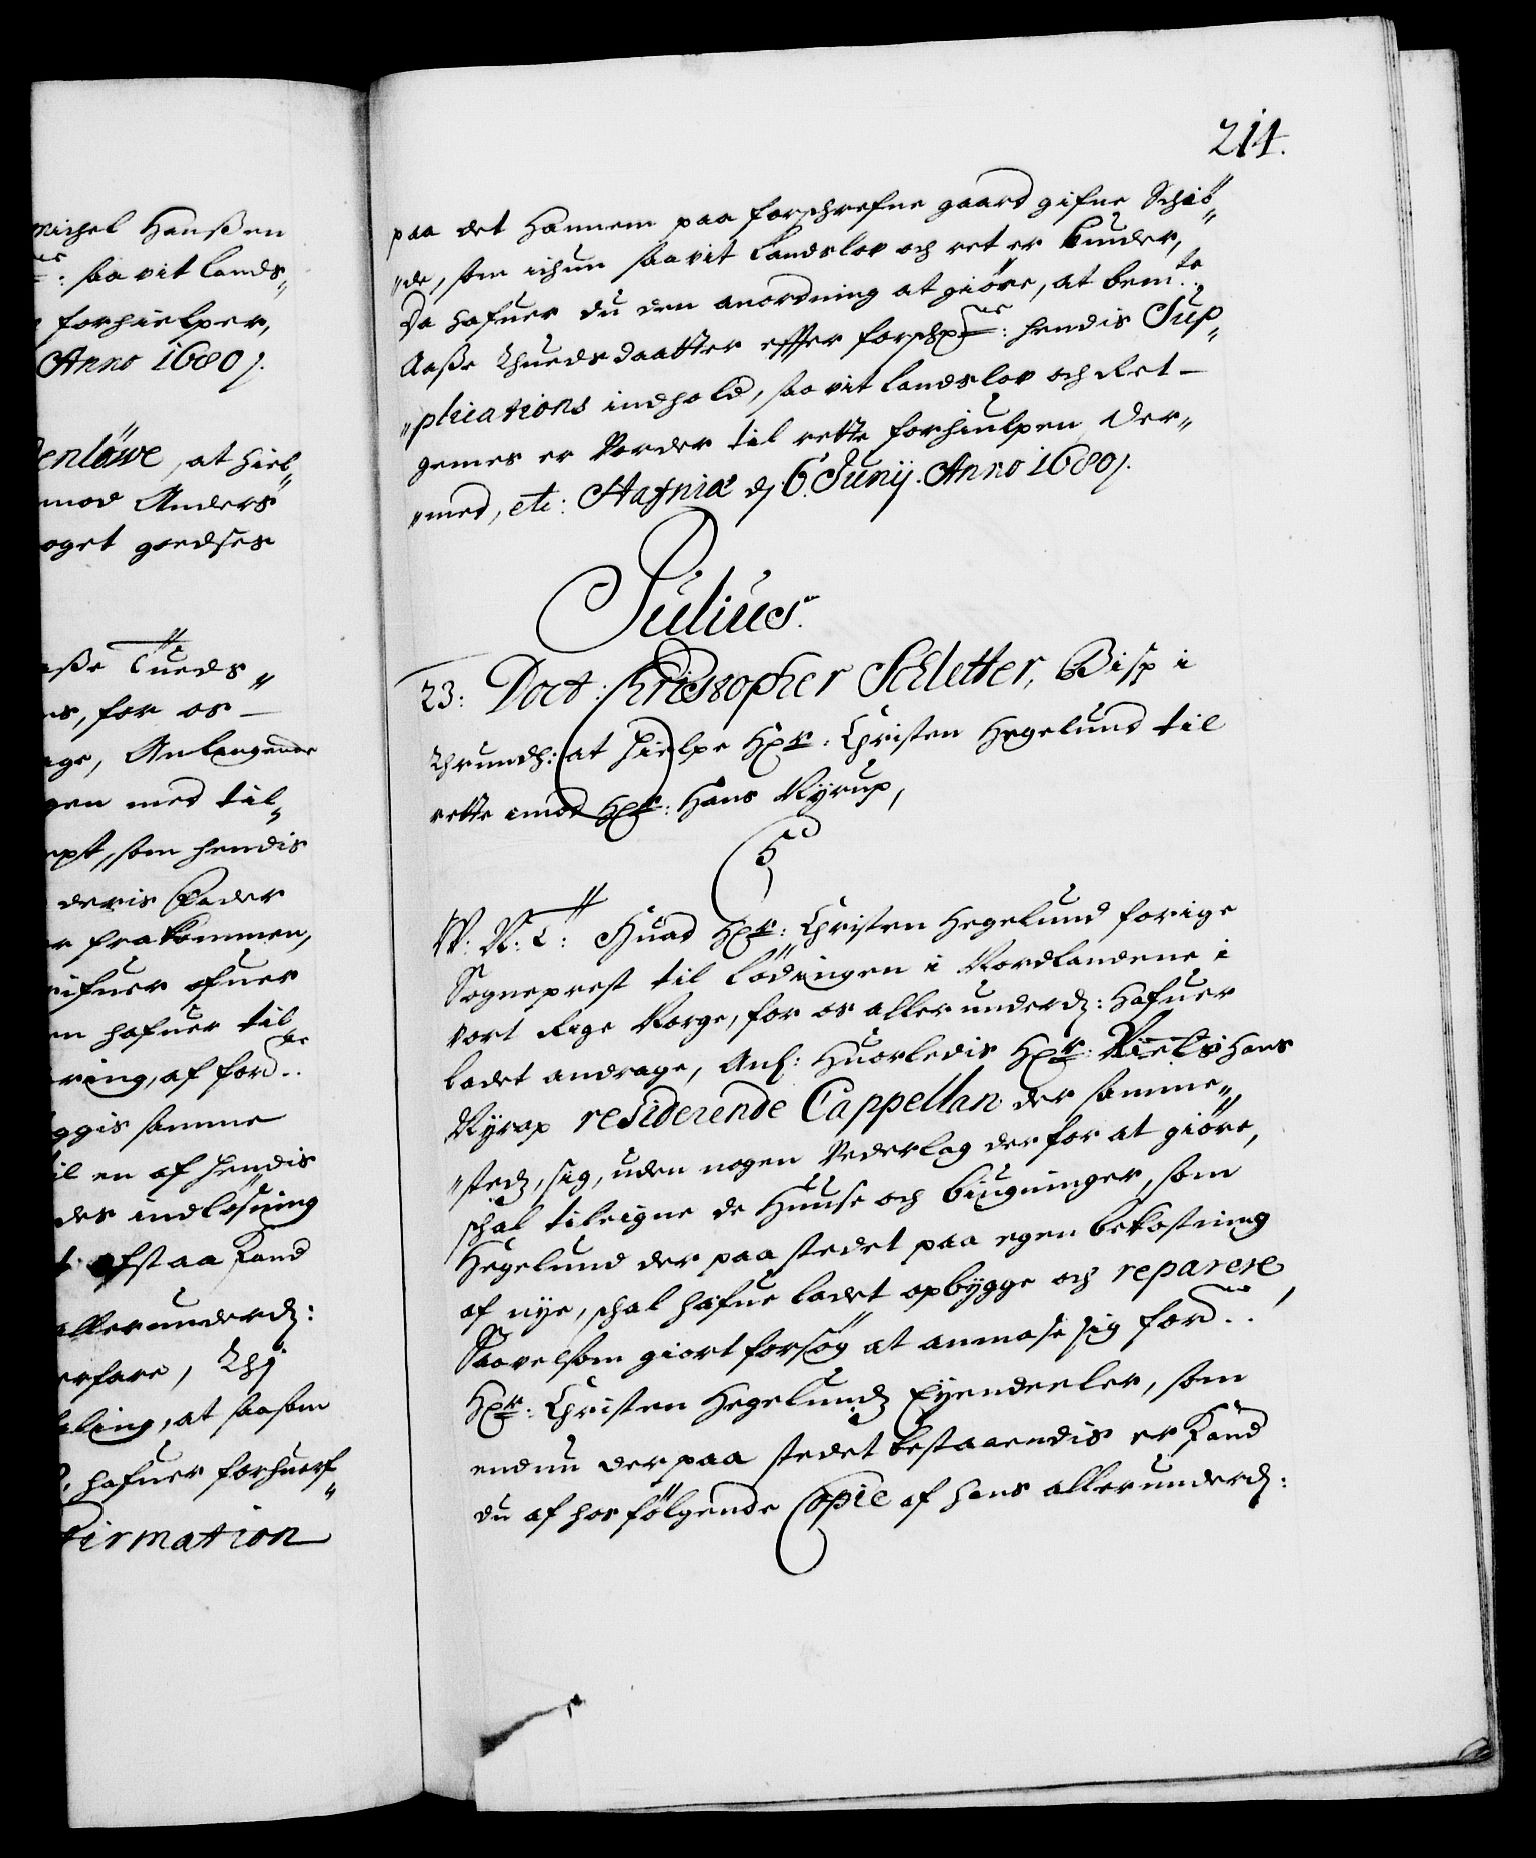 michel Hanßen
: saa vit lands„
forhielper,
Anno 1680.
enlöwe, at hiel„
mod Anders
oget goedses
aße Tueds„
es, for os
age, Anlangende
gen med til„
ept, som hendis
deris Fader
er frakommen,
rifuer ofuer
en hafuer til
ring, af ford.
ggis samme
il en af hendis
des indlösning
t afstaa kand
allerunderd:
erfare, Thj
ling, at saasom
hafuer forhuerf„
firmation
214.
paa det hannem paa forschrefne gaard gifne Schiö„
„de, som ichun saavit Landslov och ret er kunder,
Da hafuer du den anordning at giöre, at bemte.
Aaße Thuedsdaatter effter forsch.ne: hendis Sup„
„plications indhold, saavit landslov och Ret
gemes er vorder til rette forhiulpen, Der„
„med, etc: Hafniæ dj 6. Junij. Anno 1680.
Julius.
23: Doct: Christopher Schletter, Bisp i
Thrundh: at hielpe Hr: Christen Hegelund til
rette imod Hr: Hans Nyrup,
C5
W: N: T: Huad Hr: Christen Hegelund forige
Sogneprest til Lödingen i Nordlandene i
vort Rige Norge, for os allerunderd: hafuer
ladet andrage, Anl: huorledis Hr: Niels Hans
Nyrop residerende Cappellan der samme„
„sted, sig, uden nogen Vederlag derfor at giöre,
schal tileigne de Huuse och biugninger, som
Hegelund der paa stedet paa egen bekostning
af nye, schal hafue ladet opbygge och reparere,
Saavelsom giort forsög at anmase sig ford.ne
Hr: Christen Hegelunds Eyendeeler, som
endnu der paa stedet bestaaendis er kand
du af hos fölgende Copie af hans allerunderd: